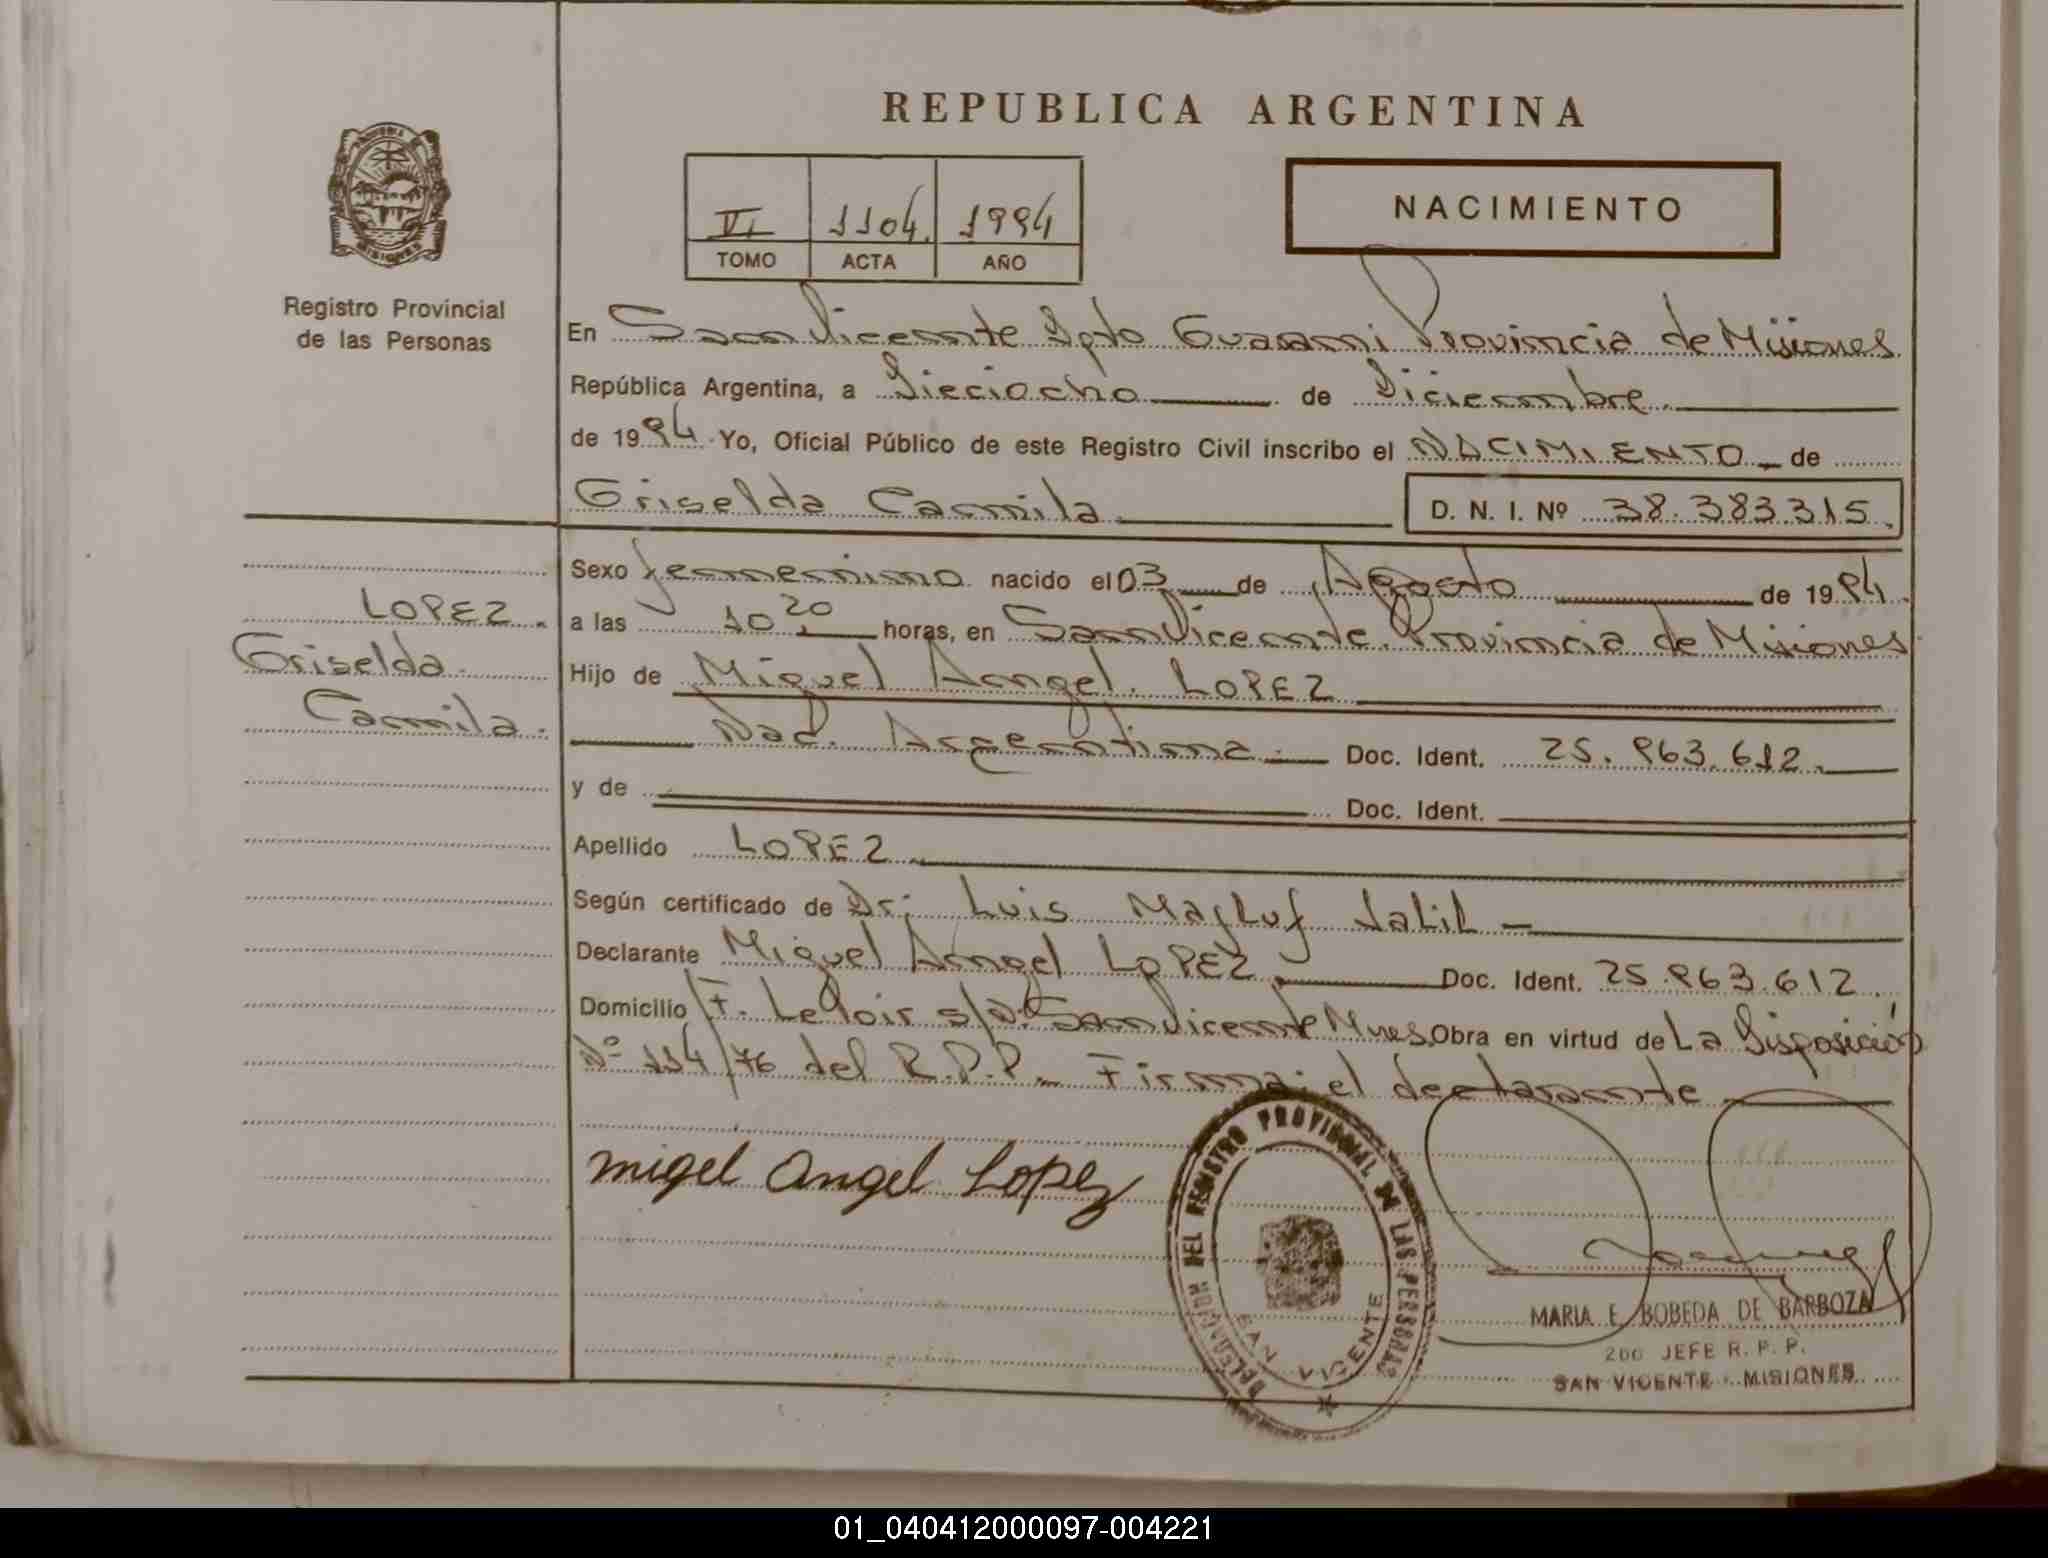 REPUBLICA ARGENTINA
VI 1104. 1994
TOMO ACTA AÑO
NACIMIENTO
MISIONES
Registro Provincial
de las Personas
En San Vicente Dpto Guarani Provincia de Misiones
República Argentina, a Dieciocho de Diciembre.
de 1994 Yo, Oficial Público de este Registro Civil inscribo el NACIMIENTO de
Griselda Camila D. N. I. Nº 38.383.315.
LOPEZ.
Griselda
Camila.
Sexo femenino nacido el 03 de Agosto de 1994.
a las 10 20 horas, en San Vicente. Provincia de Misiones
Hijo de Miguel Angel. LOPEZ
Nac. Argentina. Doc. Ident. 25.963.612.
y de Doc. Ident.
Apellido LOPEZ
Según certificado de Dr: Luis Majluf Jalil
Declarante Miguel Angel LOPEZ Doc. Ident. 25.963.612.
Domicilio F. Leloir s/Nº San Vicente Mnes. Obra en virtud de La Disposición
Nº 114/76 del R.P.P. Firma: el declarante
migel Angel Lopez
DELEGACION DEL REGISTRO PROVINCIAL DE LAS PERSONAS
SAN VICENTE
MARIA E. BOBEDA DE BARBOZA
2do JEFE R. P. P.
SAN VICENTE - MISIONES
01_040412000097-004221